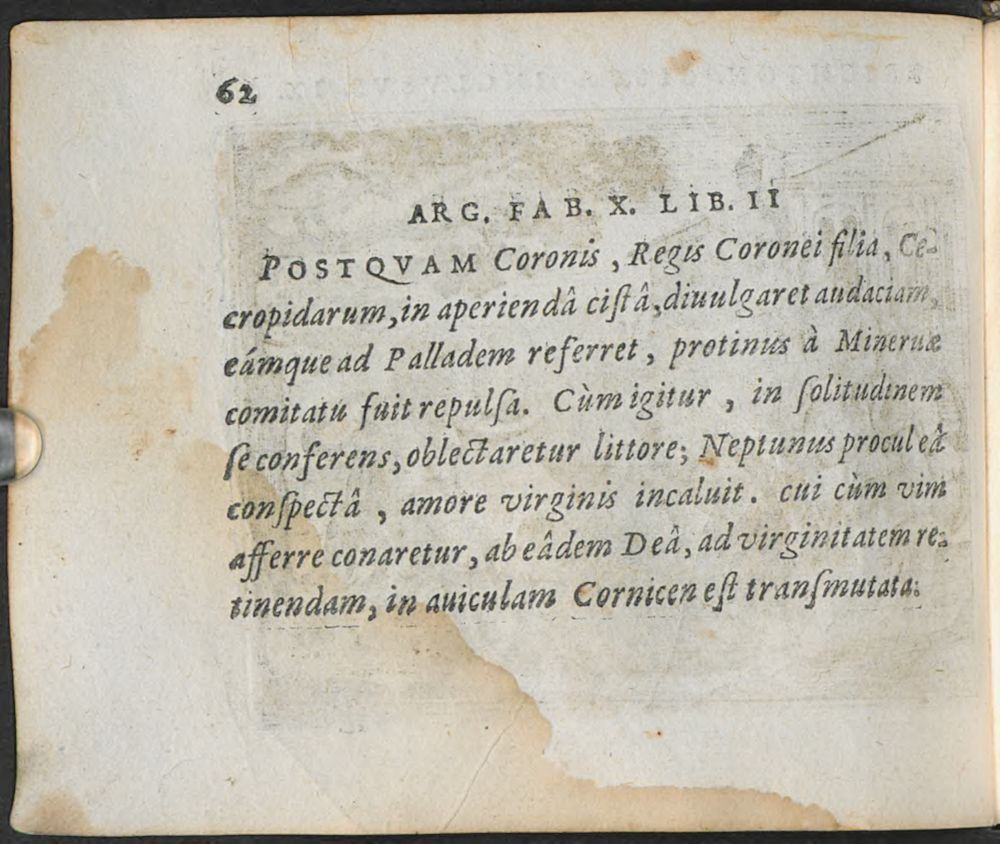 62
ARG. FAB. X. LIB. II
POSTQVAM Coronis, Regis Coronei filia, Ce-
cropidarum, in aperiendâ cistâ, diuulgaret audaciam,
eámque ad Palladem referret, protinus à Mineruæ
comitatu fuit repulsa. Cùm igitur, in solitudinem
se conferens, oblectaretur littore; Neptunus procul eâ
conspectâ, amore virginis incaluit. cui cùm vim
afferre conaretur, ab eâdem Deâ, ad virginitatem re-
tinendam, in auiculam Cornicen est transmutata.